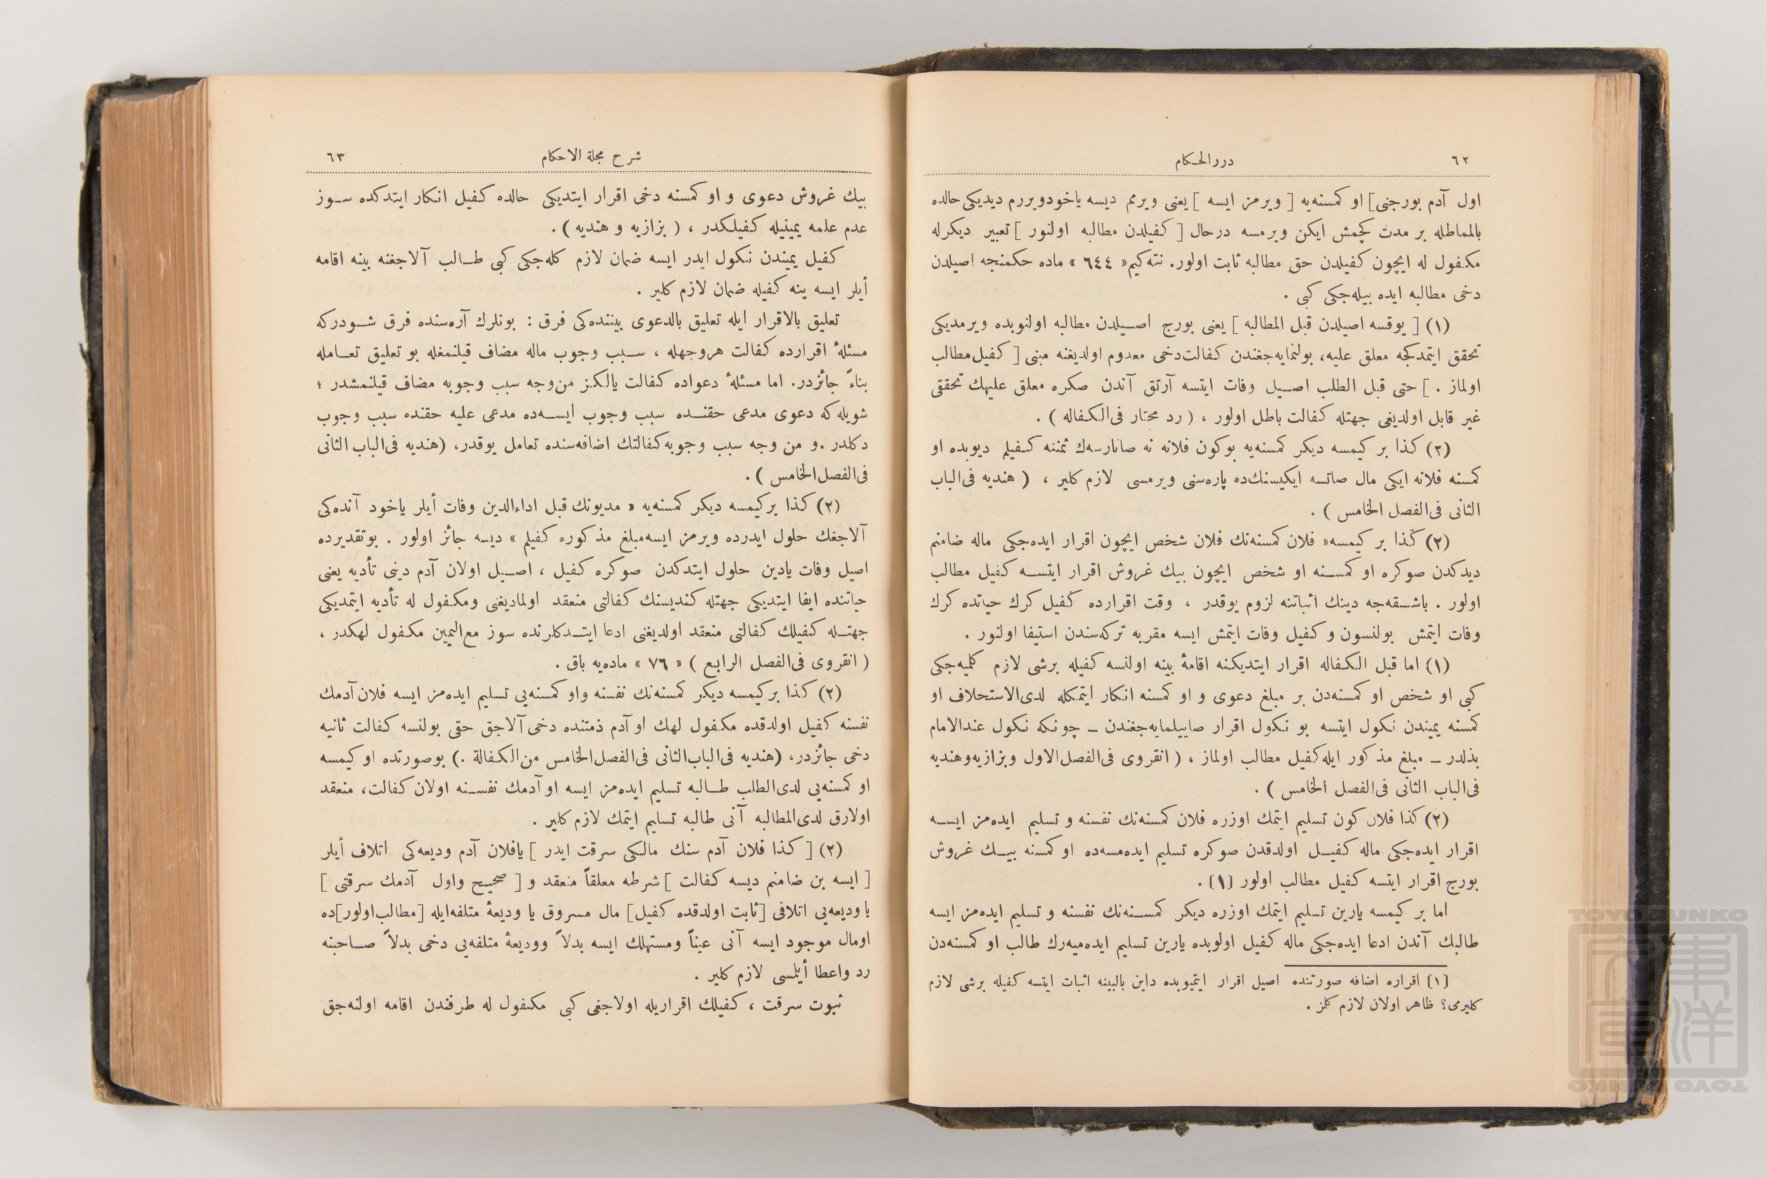 ٦٢
دررالحكام
اول آدم بورجنی] او كمسنه‌یه [ ویرمز ایسه ] یعنی ویرمم دیسه یاخودویررم دیدیكی حالده
بالمماطله بر مدت كچمش ایكن ویرمسه درحال [ كفیلدن مطالبه اولنور ] تعبیر دیكرله
مكفول له ایچون كفیلدن حق مطالبه ثابت اولور. نته‌كیم « ٦٤٤ » ماده حكمنجه اصیلدن
دخی مطالبه ایده بیله‌جكی كبی .
(١) [ یوقسه اصیلدن قبل المطالبه ] یعنی بورج اصیلدن مطالبه اولنوبده ویرمدیكی
تحقق ایتمدكجه معلق علیه، بولنمایه‌جغندن كفالت‌دخی معدوم اولدیغنه مبنی [ كفیل مطالب
اولماز . ] حتی قبل الطلب اصیل وفات ایتسه آرتق آندن صكره معلق علیهك تحققی
غیر قابل اولدیغی جهتله كفالت باطل اولور ، ( رد محتار فی‌الكفاله ) .
(٢) كذا بر كیمسه دیكر كمسنه‌یه بوكون فلانه نه صاتارسه‌ك ثمننه كفیلم دیوبده او
كمسنه فلانه ایكی مال صاتسه ایكیسنك‌ده پاره‌سنی ویرمسی لازم كلیر ، ( هندیه فی‌الباب
الثانی فی‌الفصل الخامس ) .
(٢) كذا بر كیمسه « فلان كمسنه‌نك فلان شخص ایچون اقرار ایده‌جكی ماله ضامنم
دیدكدن صوكره او كمسنه او شخص ایچون بیك غروش اقرار ایتسه كفیل مطالب
اولور . باشقه‌جه دینك اثباتنه لزوم یوقدر ، وقت اقرارده كفیل كرك حیاتده كرك
وفات ایتمش بولنسون و كفیل وفات ایتمش ایسه مقربه تركه‌سندن استیفا اولنور .
(١) اما قبل الكفاله اقرار ایتدیكنه اقامۀ بینه اولنسه كفیله برشی لازم كلمیه‌جكی
كبی او شخص او كمسنه‌دن بر مبلغ دعوی و او كمسنه انكار ایتمكله لدی‌الاستحلاف او
كمسنه یمیندن نكول ایتسه بو نكول اقرار صاییلمایه‌جغندن ــ چونكه نكول عندالامام
بذلدر ــ مبلغ مذكور ایله كفیل مطالب اولماز ، ( انقروی فی‌الفصل‌الاول وبزازیه‌وهندیه
فی‌الباب الثانی فی‌الفصل الخامس ) .
(٢) كذا فلان كون تسلیم ایتمك اوزره فلان كمسنه‌نك نفسنه و تسلیم ایده‌مز ایسه
اقرار ایده‌جكی ماله كفیل اولدقدن صوكره تسلیم ایده‌مسه‌ده او كمسنه بیك غروش
بورج اقرار ایتسه كفیل مطالب اولور [١] .
اما بر كیمسه یارین تسلیم ایتمك اوزره دیكر كمسنه‌نك نفسنه و تسلیم ایده‌مز ایسه
طالبك آندن ادعا ایده‌جكی ماله كفیل اولوبده یارین تسلیم ایده‌میه‌رك طالب او كمسنه‌دن
[١] اقراره اضافه صورتنده اصیل اقرار ایتمیوبده داین بالبینه اثبات ایتسه كفیله برشی لازم
كلیرمی؟ ظاهر اولان لازم كلمز .
شرح مجلة الاحكام
٦٣
بیك غروش دعوی و او كمسنه دخی اقرار ایتدیكی حالده كفیل انكار ایتدكده سوز
عدم علمه یمینیله كفیلكدر ، ( بزازیه و هندیه ) .
كفیل یمیندن نكول ایدر ایسه ضمان لازم كله‌جكی كبی طالب آلاجغنه بینه اقامه
أیلر ایسه ینه كفیله ضمان لازم كلیر .
تعلیق بالاقرار ایله تعلیق بالدعوی بیننده‌كی فرق : بونلرك آره‌سنده فرق شودركه
مسئلۀ اقرارده كفالت هروجهله ، سبب وجوب ماله مضاف قیلنمغله بو تعلیق تعامله
بناءً جائزدر. اما مسئلۀ دعواده كفالت یالكز من‌وجه سبب وجوبه مضاف قیلنمشدر ؛
شویله‌كه دعوی مدعی حقنده سبب وجوب ایسه‌ده مدعی علیه حقنده سبب وجوب
دكلدر .و من وجه سبب وجوبه كفالتك اضافه‌سنده تعامل یوقدر، (هندیه فی‌الباب الثانی
فی‌الفصل‌الخامس ) .
(٢) كذا بركیمسه دیكر كمسنه‌یه « مدیونك قبل اداءالدین وفات أیلر یاخود آنده‌كی
آلاجغك حلول ایدرده ویرمز ایسه مبلغ مذكوره كفیلم » دیسه جائز اولور . بوتقدیرده
اصیل وفات یادین حلول ایتدكدن صوكره كفیل ، اصیل اولان آدم دینی تأدیه یعنی
حیاتنده ایفا ایتدیكی جهتله كندیسنك كفالتی منعقد اولمادیغنی ومكفول له تأدیه ایتمدیكی
جهتله كفیلك كفالتی منعقد اولدیغنی ادعا ایتدكلرنده سوز مع‌الیمین مكفول لهكدر ،
( انقروی فی‌الفصل الرابع ) « ٧٦ » ماده‌یه باق .
(٢) كذا بركیمسه دیكر كمسنه‌نك نفسنه واو كمسنه‌یی تسلیم ایده‌مز ایسه فلان آدمك
نفسنه كفیل اولدقده مكفول لهك او آدم ذمتنده دخی آلاجق حقی بولنسه كفالت ثانیه
دخی جائزدر، (هندیه فی‌الباب‌الثانی فی‌الفصل‌الخامس من‌الكفالة .) بوصورتده او كیمسه
او كمسنه‌یی لدی‌الطلب طالبه تسلیم ایده‌مز ایسه او آدمك نفسنه اولان كفالت، منعقد
اولارق لدی‌المطالبه آنی طالبه تسلیم ایتمك لازم كلیر .
(٢) [ كذا فلان آدم سنك مالكی سرقت ایدر ] یافلان آدم ودیعه‌كی اتلاف أیلر
[ ایسه بن ضامنم دیسه كفالت ] شرطه معلقاً منعقد و [ صحیح واول آدمك سرقتی ]
یا ودیعه‌یی اتلافی [ثابت اولدقده كفیل] مال مسروق یا ودیعۀ متلفه‌ایله [مطالب‌اولور]ده
اومال موجود ایسه آنی عیناً ومستهلك ایسه بدلاً وودیعۀ متلفه‌یی دخی بدلاً صاحبنه
رد واعطا أیلمسی لازم كلیر .
ثبوت سرقت ، كفیلك اقراریله اولاجغی كبی مكفول له طرفندن اقامه اولنه‌جق
TOYO BUNKO
東洋文庫
TOYO BUNKO